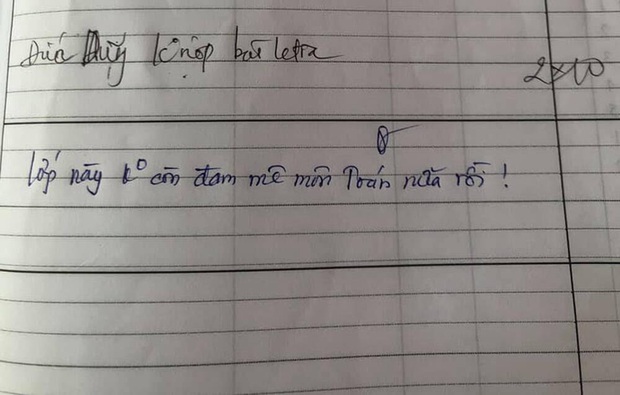 Đức Duy k nộp bài ktra
2x10
0
Lớp này k° còn đam mê môn Toán nữa rồi !